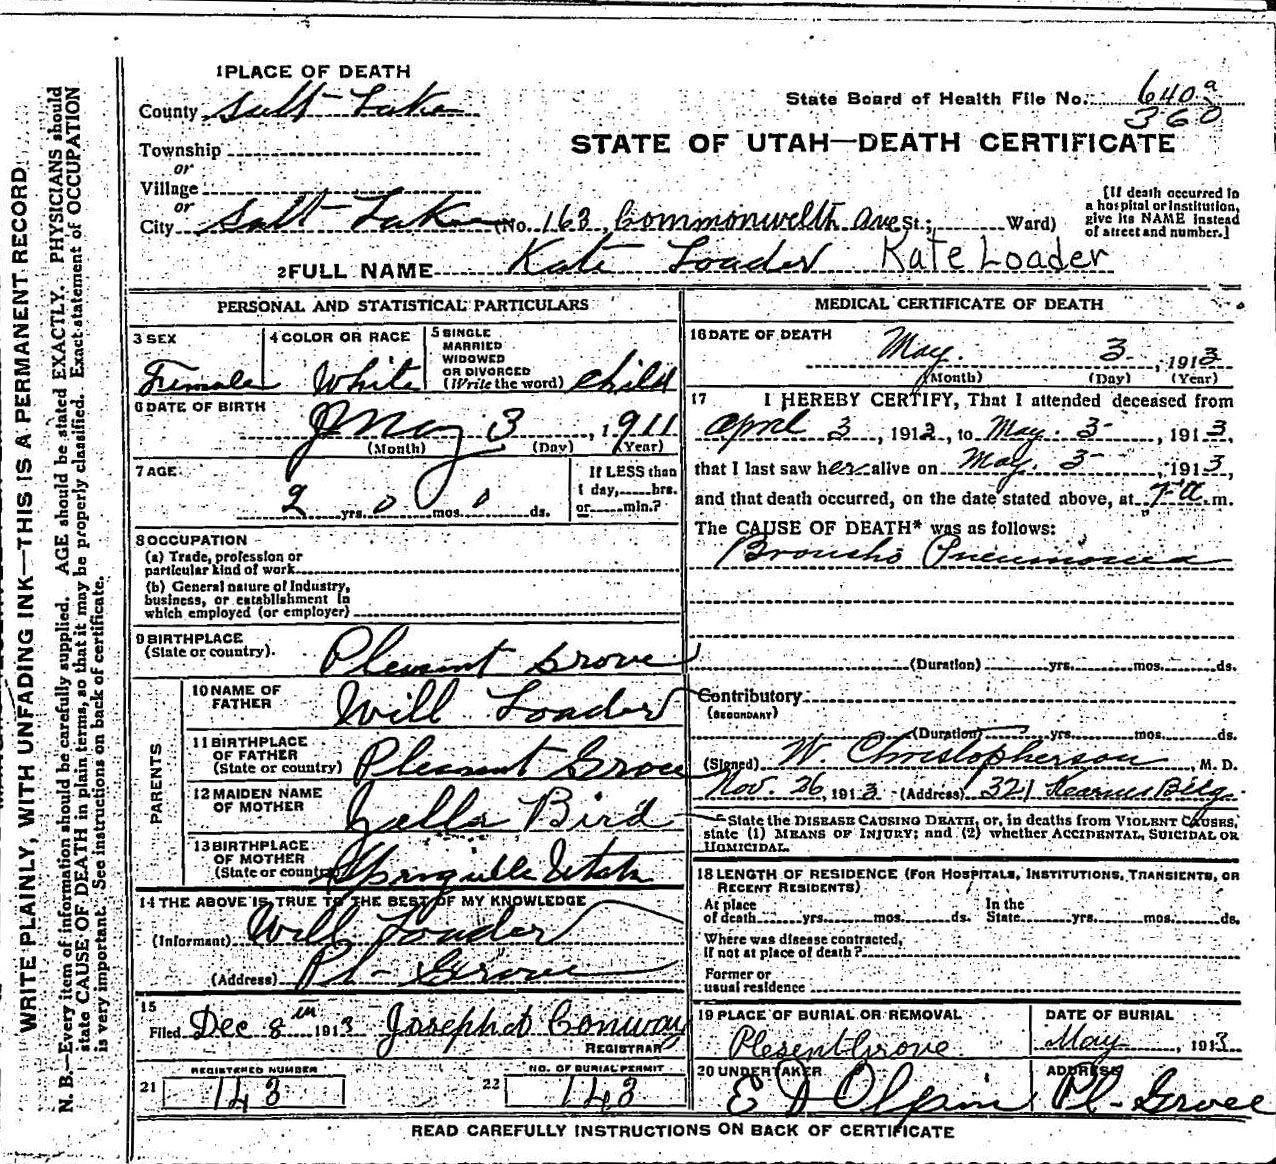 WRITE PLAINLY, WITH UNFADING INK—THIS IS A PERMANENT RECORD.
N. B.—Every item of information should be carefully supplied. AGE should be stated EXACTLY. PHYSICIANS should
state CAUSE OF DEATH in plain terms, so that it may be properly classified. Exact statement of OCCUPATION
is very important. See instructions on back of certificate.
1 PLACE OF DEATH
County Salt Lake
State Board of Health File No. 640 a
360
STATE OF UTAH—DEATH CERTIFICATE
Township
or
Village
or
City Salt Lake (No. 163 Commonwelth Ave St.; Ward)
[If death occurred in
a hospital or institution,
give its NAME instead
of street and number.]
2 FULL NAME Kate Loader Kate Loader
PERSONAL AND STATISTICAL PARTICULARS
3 SEX
Female
4 COLOR OR RACE
White
5 SINGLE
MARRIED
WIDOWED
OR DIVORCED
(Write the word) Child
6 DATE OF BIRTH
May 3, 1911
(Month) (Day) (Year)
7 AGE
2 yrs. 0 mos. 0 ds.
If LESS than
1 day, hrs.
or min.?
8 OCCUPATION
(a) Trade, profession or
particular kind of work
(b) General nature of Industry,
business, or establishment in
which employed (or employer)
9 BIRTHPLACE
(State or country). Plesant Grove
PARENTS
10 NAME OF
FATHER Will Loader
11 BIRTHPLACE
OF FATHER
(State or country) Plesant Grove
12 MAIDEN NAME
OF MOTHER Bird
13 BIRTHPLACE
OF MOTHER
(State or country) Springville Utah
14 THE ABOVE IS TRUE TO THE BEST OF MY KNOWLEDGE
(Informant) Will Loader
(Address) Pl- Grove
15
Filed Dec 8 1913 Joseph Conway
REGISTRAR
REGISTERED NUMBER
21 143
NO. OF BURIAL PERMIT
22 143
MEDICAL CERTIFICATE OF DEATH
16 DATE OF DEATH
May 3, 1913
(Month) (Day) (Year)
17 I HEREBY CERTIFY, That I attended deceased from
April 3, 1913, to May 3, 1913,
that I last saw her alive on May 3, 1913,
and that death occurred, on the date stated above, at 7 a m.
The CAUSE OF DEATH* was as follows:
Broncho Pneumonia
(Duration) yrs. mos. ds.
Contributory
(SECONDARY)
(Duration) yrs. mos. ds.
(Signed) W. Christopherson, M. D.
Nov. 26, 1913 (Address) 321 Kearns Bldg.
*State the DISEASE CAUSING DEATH, or, in deaths from VIOLENT CAUSES,
state (1) MEANS OF INJURY; and (2) whether ACCIDENTAL, SUICIDAL OR
HOMICIDAL.
18 LENGTH OF RESIDENCE (FOR HOSPITALS, INSTITUTIONS, TRANSIENTS, OR
RECENT RESIDENTS)
At place
of death yrs. mos. ds.
In the
State yrs. mos. ds.
Where was disease contracted,
if not at place of death?
Former or
usual residence
19 PLACE OF BURIAL OR REMOVAL
Plesent Grove
DATE OF BURIAL
May, 1913
20 UNDERTAKER
E D Olpin
ADDRESS
Pl- Grove
READ CAREFULLY INSTRUCTIONS ON BACK OF CERTIFICATE